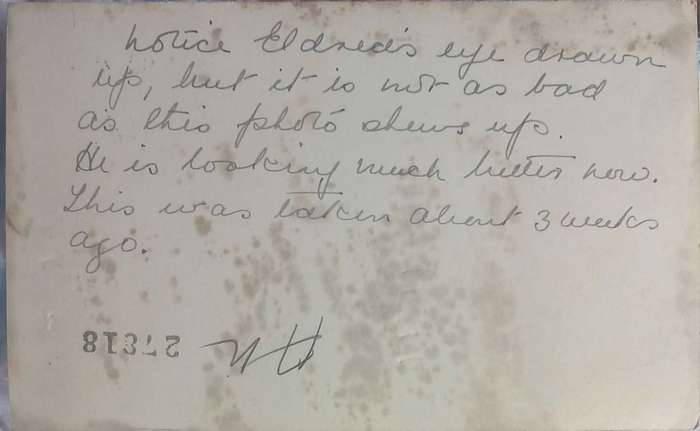 Notice Eldred's eye drawn
up, but it is not as bad
as this photo shews up.
He is looking much better now.
This was taken about 3 weeks
ago.